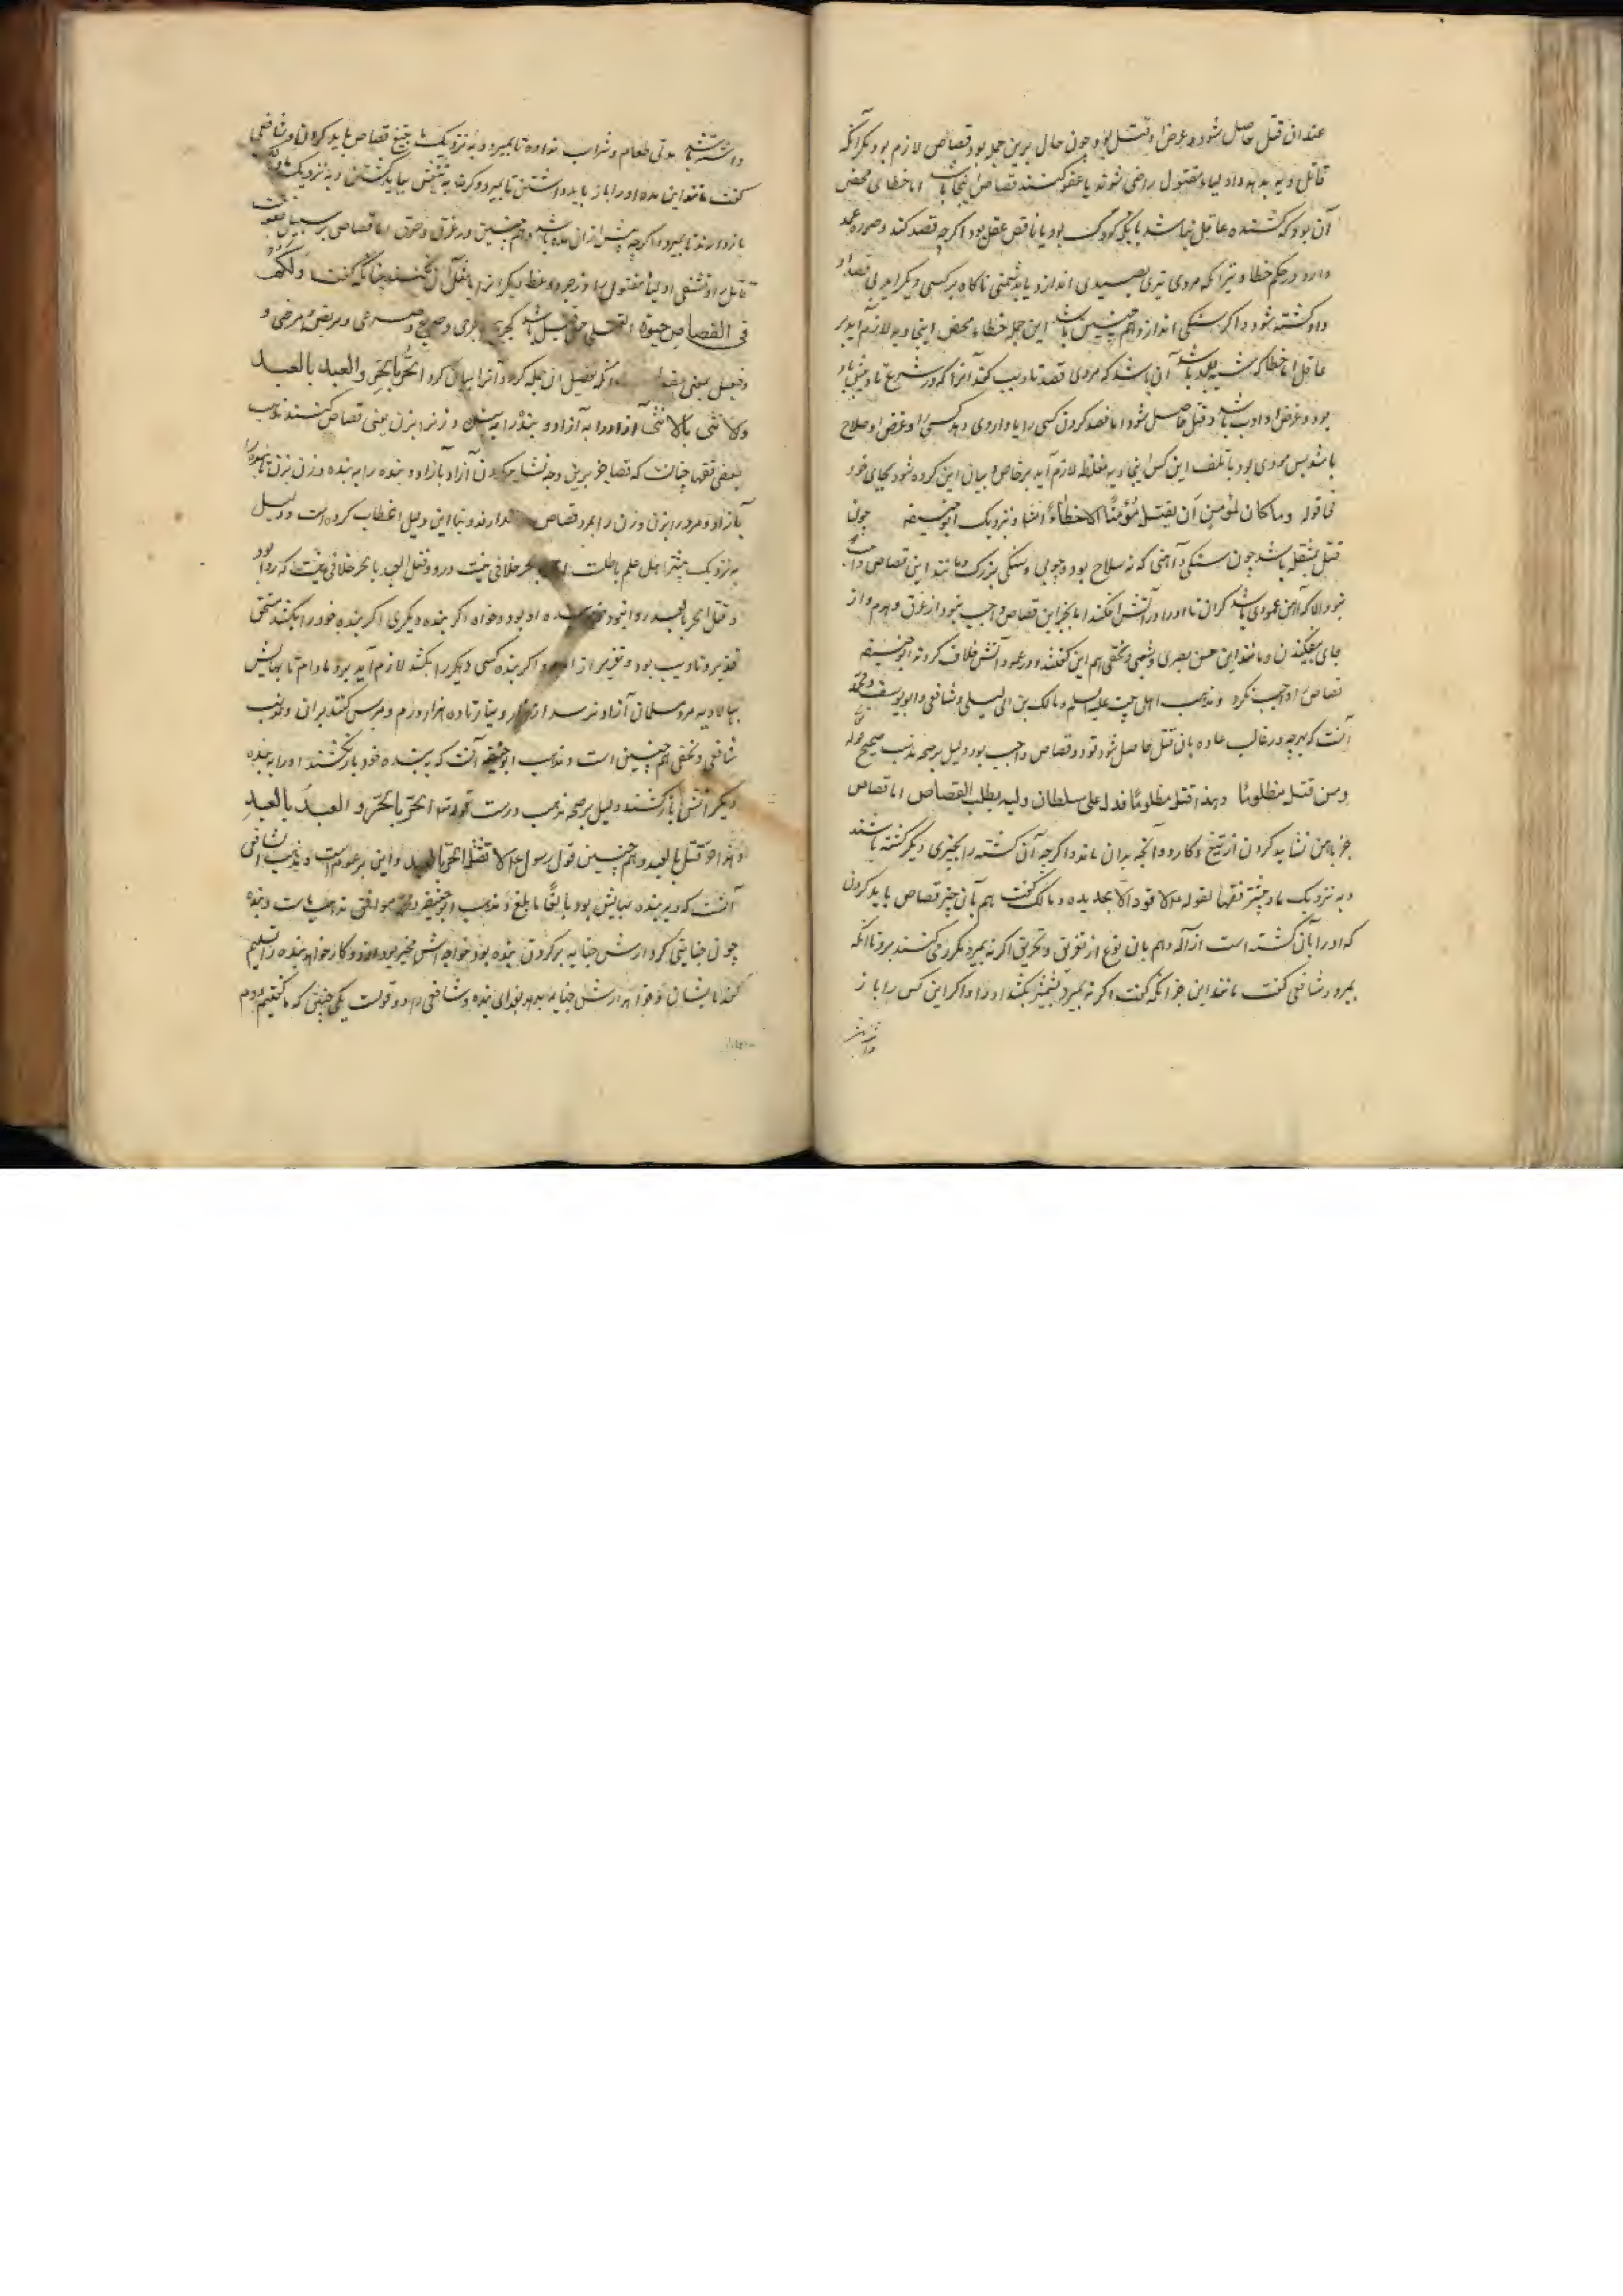 عند ان قتل حاصل شود و غرض او قتل بود چون حال برین جمله بود قصاص لازم بود مگر آنکه
قاتل دیه بدهد و اولیاء مقتول راضی شوند یا عفو کنند قصاص اینجا باشد اما خطای محض
آن بود که کشنده عاقل نباشد یا کودک بود یا ناقص عقل بود اگرچه قصد کند و صوره عمد
دارد در حکم خطا و نیز آنکه مردی تیری بصیدی اندازد یا بدشمنی ناگاه بر کسی دیگر آید بی قصد او
و او کشته شود و اگر سنگی اندازد هم چنین باشد این جمله خطاء محض اینجا دیه لازم آید بر
عاقله اما خطا که شبیه عمد باشد آن باشد که مردی قصد تادیب کند آنرا که در شرع تادیبش
بود و غرض او ادب باشد و قتل حاصل شود اما فصد کردن کسی را یا داروی دهد کسی را و غرض او صلاح
باشد پس مودی بود با تلف این کس اینجا دیه مغلظه لازم آید بر خاص و بیان این کرده شود بجای خود
فی قوله وما کان لمؤمن أن یقتل مؤمنًا الا خطاءً انشا و نزدیک ابوحنیفه چون
قتل بمثقله باشد چون سنگی و آهنی که نه سلاح بود و چوبی و سنگی بزرگ و مانند این قصاص واجب
نبود الا که آهن عمودی باشد گران تا او را در آتش افکند اما بجز این قصاص واجب نبود از غرق و هدم و از
جای بیفکندن و مانند این حسن بصری و شعبی و نخعی هم این گفتند و در عمود آتش خلاف کردند ابوحنیفه
قصاص را واجب نکرد و مذهب اهل بیت علیه السلم و مالک بن ابی لیلی و شافعی و ابو یوسف و محمد
آنست که هرچه در غالب عاده بآن قتل حاصل شود قود و قصاص واجب بود دلیل بر صحه مذهب صحیح قوله
ومن قتل مظلومًا وهذا قتل مظلومًا فدل علی سلطان ولیه یطلب القصاص اما قصاص
جز بآهن نشاید کردن از تیغ و کارد و آنچه بدان ماند و اگرچه آن کشته را بچیزی دیگر کشته باشند
و به نزدیک ما و بیشتر فقها لقوله لا قود الا بحدیده و مالک گفت هم بآن چیز قصاص باید کردن
که او را بآن کشته است از آله و هم بآن نوع از تغریق و تحریق اگر نه بمیرد مکرر می کنند برو تا آنکه
بمیرد و شافعی گفت مانند این جز آنکه گفت اگر نه بمیرد بشمشیر بکشد او را و اگر این کس را باز
داشته باشد مدتی طعام و شراب نداده تا بمیرد و به نزدیک ما بتیغ قصاص باید کردن و شافعی
گفت مانند این مده او را باز باید داشتن تا بمیرد و گرنه به تیغش بباید کشتن و به نزدیک مالک
باز دارند تا بمیرد و اگرچه بیش از آن مده باشد و هم چنین در غرق و حرق اما قصاص بر سبیل عقوبت
قاتل و تشفی اولیا مقتول و زجر و وعظ دیگران تا مثل آن نکنند چنانکه گفت ولکم
فی القصاص حیوة القتلی جمع قتیل باشد کجریح و جرحی و صریع و صرعی و مریض و مرضی و
فعیل بمعنی مفعول آنکه تفصیل آن جمله کرد و آنرا بیان کرد الحر بالحر والعبد بالعبد
ولانثی بالانثی آزاد را به آزاد و بنده را به بنده و زن را بزن یعنی قصاص کنند مذهب
بعضی فقها چنانست که قصاص جز برین وجه نشاید کردن آزاد بآزاد و بنده را به بنده و زن بزن تا بنده را
بآزاد و مرد را بزن و زن را بمرد قصاص ندارند و بنا این دلیل خطاب کرده است و دلیل
به نزدیک بیشتر اهل علم باطلست بحر خلافی نیست درو و قتل العبد بالحر خلافی نیست که روا بود
و قتل الحر بالعبد روا نبود خواه بنده او بود و خواه اگر بنده دیگری اگر بنده خود را بکشد مستحق
تعزیر و تادیب بود و تعزیر از امام و اگر بنده کسی دیگر را بکشد لازم آید برو مادام تا بهایش
ببالا دیه مرد مسلمان آزاد نرسد از هزار دینار تا ده هزار درم و بهرس کنند بر آن و مذهب
شافعی و نخعی هم چنینی است و مذهب ابوحنیفه آنست که ببنده خود باز نکشند او را به بنده
دیگر انش باز کشند دلیل بر صحه مذهب درست قوله الحر بالحر و العبد بالعبد
قتل بالعبد و هم چنین قول رسول لا تقتل الحر بالعبد و این بر عمومست و مذهب شافعی
آنست که دیه بنده بهایش بود بالغًا ما بلغ و مذهب ابوحنیفه و محمد موافق مذهب ماست و بنده
چون جنایتی کرد ارش جنایه بر گردن بنده بود خواجه اش مخیر بود از دو کار خواهد بنده را تسلیم
کند بایشان و خواهد ارش جنایه بدهد بفدای بنده و شافعی را دو قولست یکی چنینی که ما گفتیم و دوم